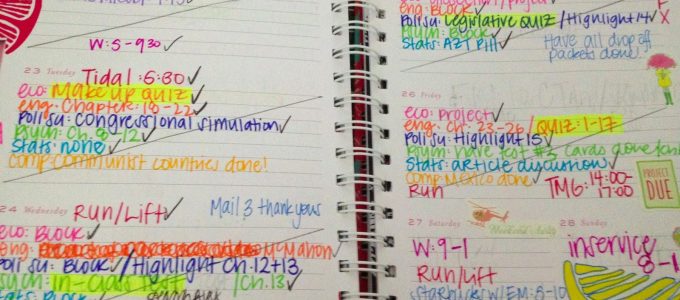 W: 5-930 ✓
23 Tuesday Tidal: 5:30 ✓
eco: Make up quiz ✓
eng: Chapter: 18-22 ✓
Poli su: congressional simulation ✓
Psych: Ch. 8-12 ✓
Stats: none ✓
Comp: communist countries done!
24 Wednesday Run/Lift ✓ Mail 3 thank yous
eco: Block ✓
eng:
Poli su: Block ✓ / Highlight Ch. 12+13
Psych: in-class test / Ch. 13 ✓
Stats: Block
eng: Block ✓
Poli su: Legislative QUIZ ✓ / Highlight 14 ✓
Psych: Block ✓
Stats: AZT Pill ✓
Have all drop off
packets done.
26 Friday
eco: project ✓
eng: Ch. 23-26 / QUIZ: 1-17
Poli su: Highlight 15 ✓
Psych: have test #3 cards done
Stats: article discussion ✓
Comp: Mexico done ✓
Run TMG: 14:00-
17:00
PROJECT
DUE
27 Saturday
W: 9-1
Run/Lift
28 Sunday
inservice
8-1